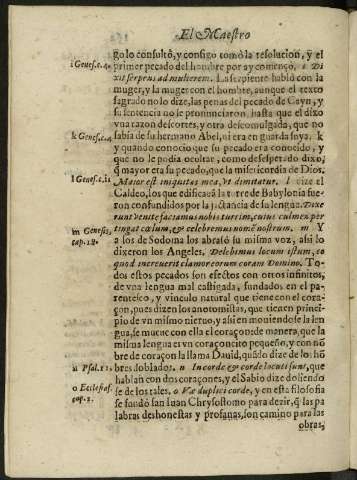 El Maestro
go lo consultò, y consigo tomò la resolucion, y el
i Genes. c. 4.
primer pecado del hombre por ay començò. i Di
xit serpens ad mulierem. La serpiente hablò con la
muger, y la muger con el hombre, aunque el texto
sagrado no lo dize, las penas del pecado de Cayn, y
su sentencia no le pronunciaron, hasta que el dixo
vna razon descortes, y otra descomulgada, que no
k Genes. c. 4.
sabia de su hermano Abel, ni era en guarda suya. k
y quando conocio que su pecado era conocido, y
que no le podia ocultar, como desesperado dixo,
q̃ mayor era su pecado, que la misericordia de Dios.
l Genes. c. 11
Maior est iniquitas mea, vt dimittatur. l dize el
Caldeo, los que edificauã la torre de Babylonia fue
ron confundidos por la jactancia de su lengua. Dixe
runt venite faciamus nobis turrim, cuius culmen per
m Genesis,
cap. 18.
tingat cœlum, & celebremus nomẽ nostrum. m Y
a los de Sodoma los abrasò su misma voz, assi lo
dixeron los Angeles. Delebimus locum istum, eo
quod increuerit clamor eorum coram Domino. To
dos estos pecados son efectos con otros infinitos,
de vna lengua mal castigada, fundados en el pa-
rentesco, y vinculo natural que tiene con el cora-
çon, pues dizen los anotomistas, que tienen princi-
pio de vn mismo nieruo, y assi en mouiendose la len
gua, se mueue con ella el coraçon de manera, que la
misma lengua es vn coraçoncito pequeño, y con nõ
bre de coraçon la llama Dauid, quãdo dize de los hõ
n Psal. 11.
bres doblados. n In corde & corde locuti sunt, que
hablan con dos coraçones, y el Sabio dize doliendo
o Ecclesias.
cap. 2.
se de los tales. o Væ duplici corde, y en esta filosofia
se fundò san Iuan Chrysostomo para dezir, q̃ las pa
labras deshonestas y profanas, son camino para las
obras,